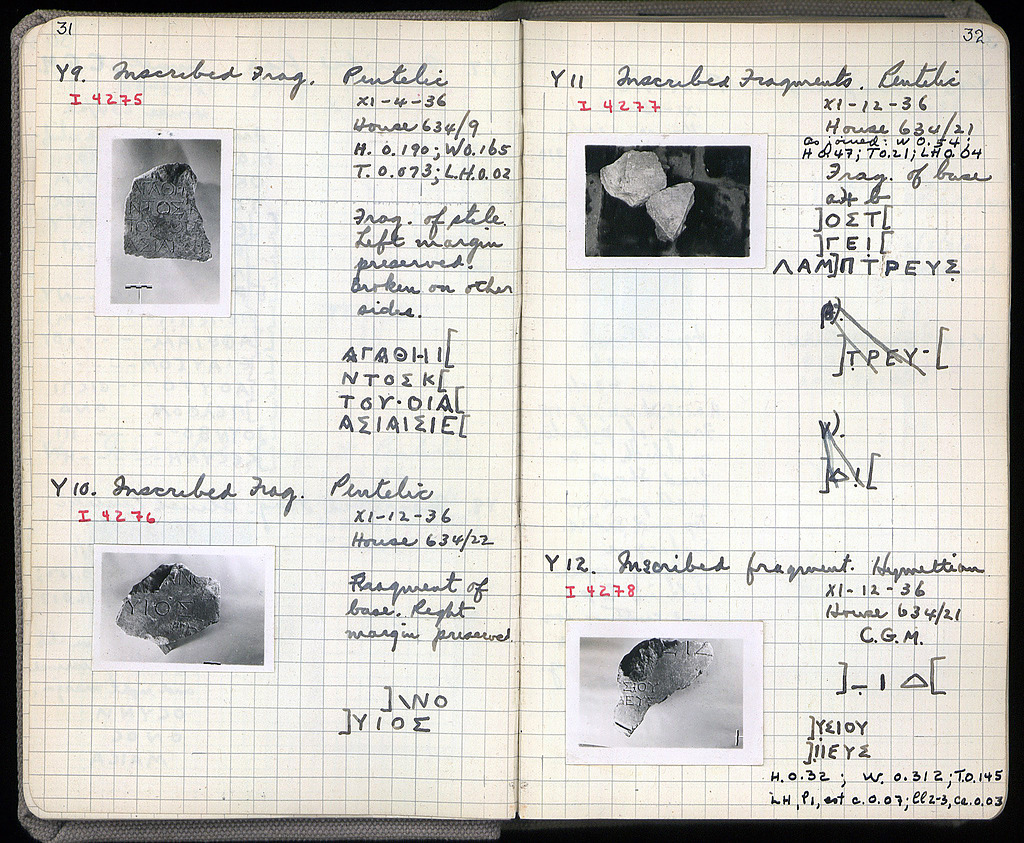 31
Y9. Inscribed Frag. Pentelic
I 4275
XI-4-36
House 634/9
H. 0.190; W 0.165
T. 0.073; L.H. 0.02
Frag. of stele.
Left margin
preserved.
Broken on other
sides.
ΑΓΑΘΗΙ[
ΝΤΟΣΚ[
ΤΟΥ·ΟΙΑ[
ΑΣΙΑΙΣΙΕ[
Y10. Inscribed Frag. Pentelic
I 4276
XI-12-36
House 634/22
Fragment of
base. Right
margin preserved.
]\ΝΟ
]ΥΙΟΣ
32
Y11 Inscribed Fragments. Pentelic
I 4277
XI-12-36
House 634/21
as joined: W 0.54;
H 0.47; T 0.21; LH 0.04
Frag. of base
a + b
]ΟΣΤ[
]ΓΕΙ[
ΛΑΜ]ΠΤΡΕΥΣ
β).
]ΤΡΕΥ-[
γ).
Y12. Inscribed fragment. Hymettian
I 4278
XI-12-36
House 634/21
C.G.M.
]_ Ι Δ[
]ΥΣΙΟΥ
]ΙΙΕΥΣ
H. 0.32; W. 0.312; T. 0.145
LH, l 1, est c. 0.07; ll 2-3, ca. 0.03